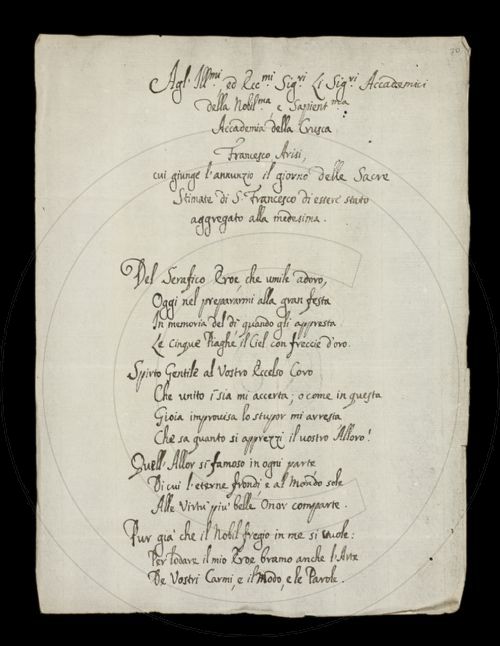 70
Agl' Ill.mi ed Ecc.mi Sig.ri Li Sig.ri Accademici
della Nobil.ma e Sapient.ma
Accademia della Crusca
Francesco Arisi,
cui giunge l'annunzio il giorno delle Sacre
Stimate di S. Francesco di essere stato
aggregato alla medesima.
Del Serafico Eroe che umile adoro,
Oggi nel prepararmi alla gran festa
In memoria del dì quando gli appresta
Le cinque Piaghe il Ciel con freccie d'oro.
Spirto Gentile al Vostro Eccelso Coro
Che unito i' sia mi accerta; o come in questa
Gioia improvisa lo stupor mi arresta
Che sa quanto si apprezzi il vostro Alloro!
Quell' Allor sì famoso in ogni parte
Di cui l'eterne frondi e al Mondo sole
Alle Virtù più belle Onor comparte.
Pur già che il Nobil fregio in me si vuole:
Per lodare il mio Eroe bramo anche l'Arte
De Vostri Carmi, e il Modo, e le Parole.